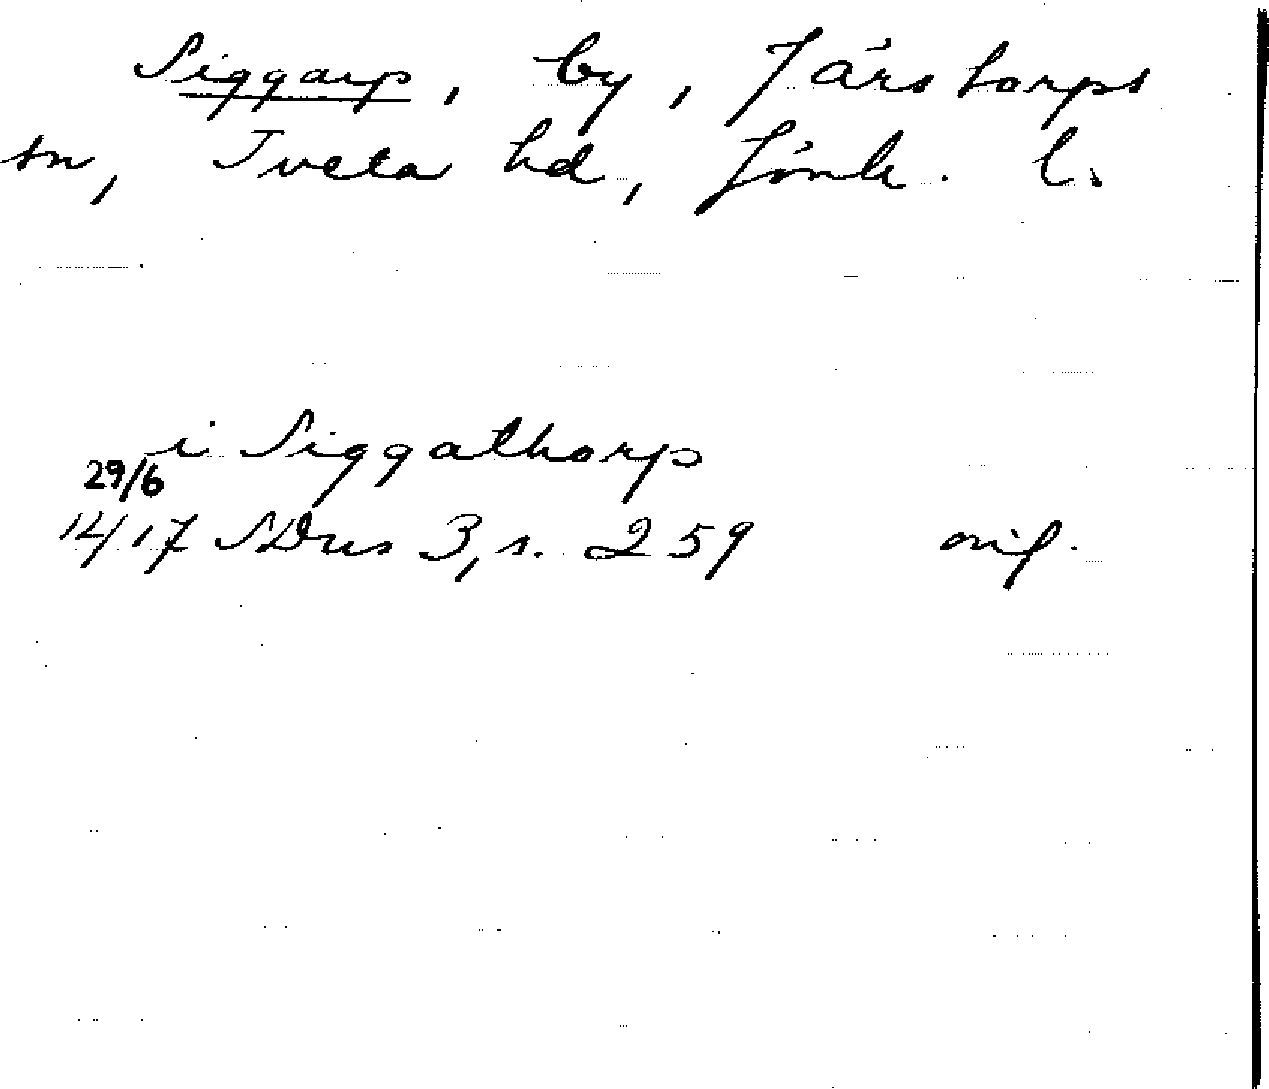 Siggarp, by, Järstorps
sn, Tveta hd, Jönk. l.
i Siggathorp
29/6
14/17 SDns 3, s. 259 orig.